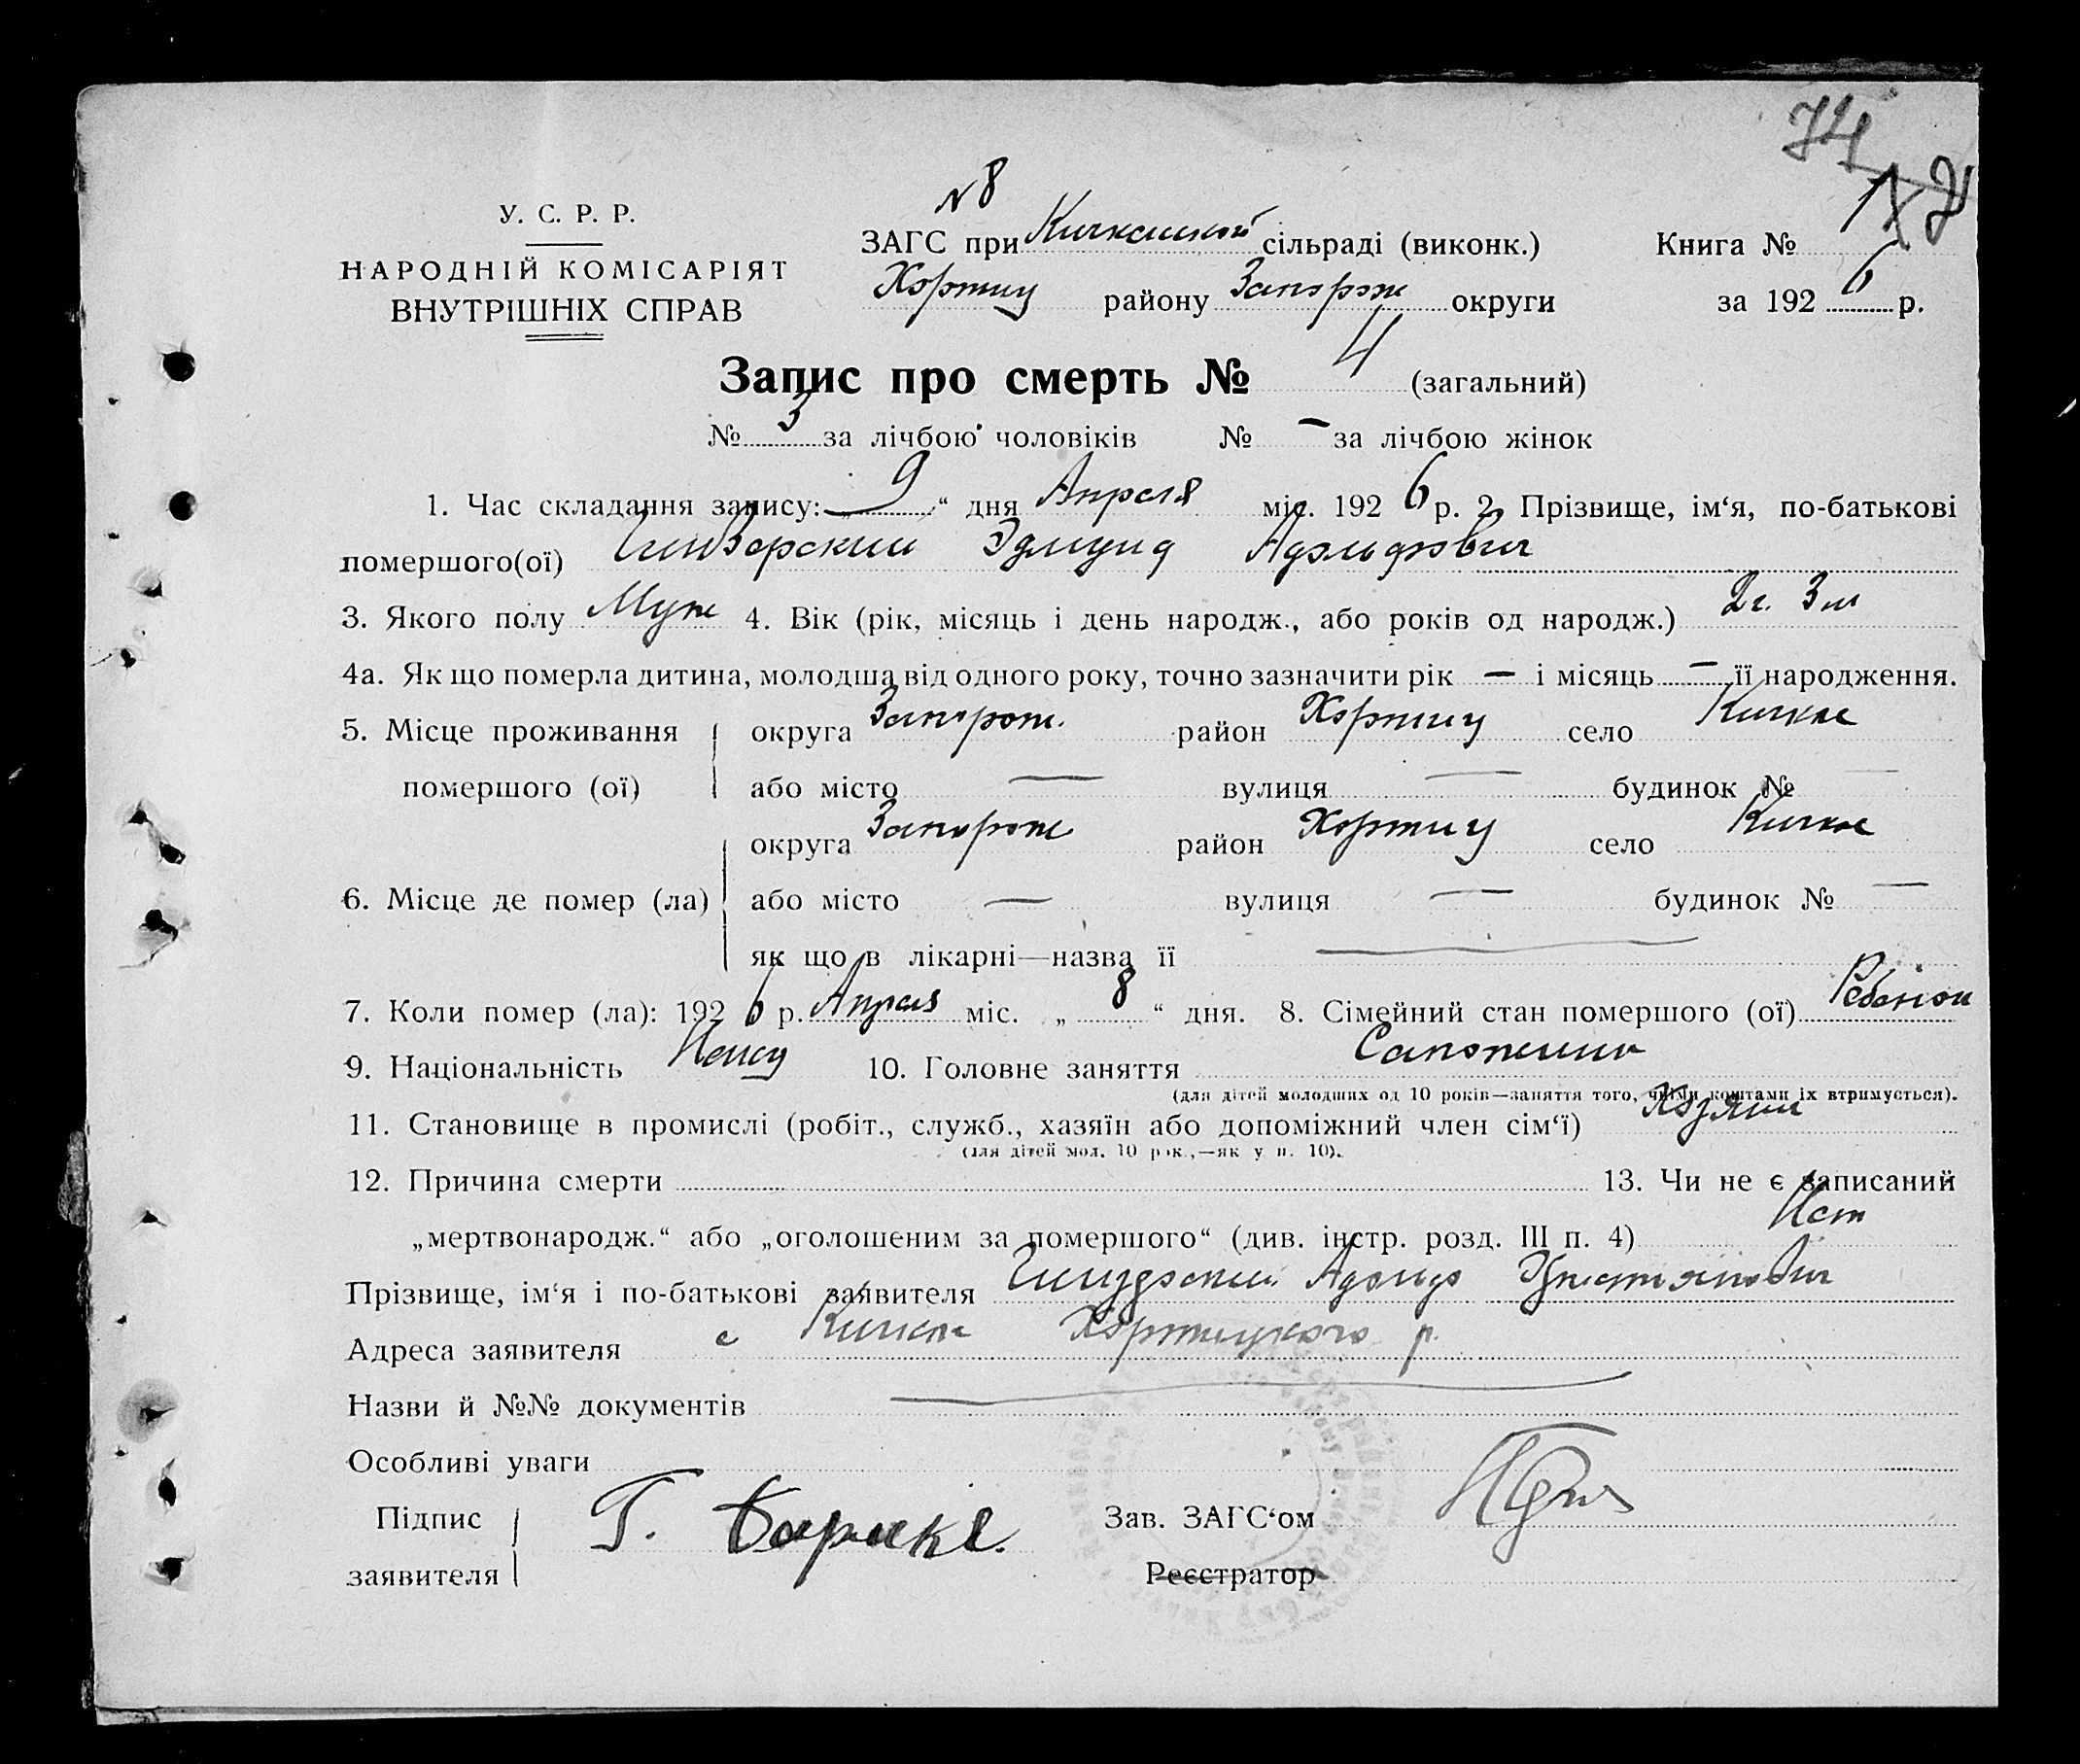 74
№ 8
У. С. Р. Р.
НАРОДНІЙ КОМІСАРІЯТ
ВНУТРІШНІХ СПРАВ
ЗАГС при Кичкасской сільраді (виконк.)
Хортиц району Запорож округи
Книга №
за 192 6 р.
Запис про смерть № 4 (загальний)
№ 3 за лічбою чоловіків № — за лічбою жінок
1. Час складання запису: „ 9 “ дня Апреля міс. 192 6 р. 2. Прізвище, ім‘я, по-батькові
помершого(ої) Эдмунд Адольфович
3. Якого полу Муж 4. Вік (рік, місяць і день народж., або років од народж.) 2 г. 3 м
4а. Як що померла дитина, молодша від одного року, точно зазначити рік — і місяць — її народження.
5. Місце проживання округа Запорож. район Хортиц село Кичкас
помершого (ої) або місто — вулиця — будинок № —
округа Запорож район Хортиц село Кичкас
6. Місце де помер (ла) або місто — вулиця — будинок № —
як що в лікарні—назва її —
7. Коли помер (ла): 192 6 р. Апреля міс. „ 8 “ дня. 8. Сімейний стан помершого (ої) Ребенок
9. Національність Немец 10. Головне заняття Сапожник
(для дітей молодших од 10 років—заняття того, чиїми коштами їх втримується).
11. Становище в промислі (робіт., служб., хазяїн або допоміжний член сім‘ї) Хозяин
(для дітей мол. 10 рок.,—як у п. 10).
12. Причина смерти 13. Чи не є записаний
„мертвонародж.“ або „оголошеним за помершого“ (див. інстр. розд. III п. 4) Нет
Прізвище, ім‘я і по-батькові заявителя Адольф
Адреса заявителя с Кичкас Хортицкого р.
Назви й №№ документів —
Особливі уваги
Підпис Г. Зав. ЗАГС‘ом
заявителя Реєстратор